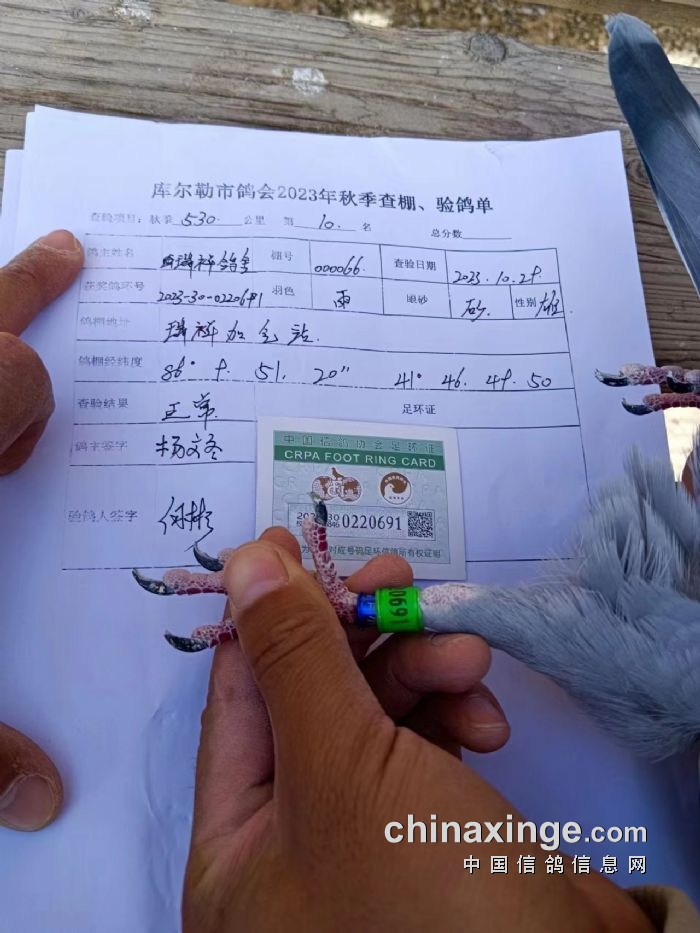 库尔勒市鸽会2023年秋季查棚、验鸽单
查验项目：秋季 530 公里 第 10. 名 总分数
鸽主姓名 瑞祥鸽舍 棚号 000066. 查验日期 2023.10.29
获奖鸽环号 2023-30-0220691 羽色 雨 眼砂 砂. 性别 雄.
鸽棚地址 瑞祥加气站.
鸽棚经纬度 86° 9. 51. 20" 41° 46. 49. 50
查验结果 正常 足环证
鸽主签字 杨文冬
验鸽人签字 何彬
中国信鸽协会足环证
CRPA FOOT RING CARD
0220691
对应号码足环信鸽所有权证明
0691
chinaxinge.com
中国信鸽信息网